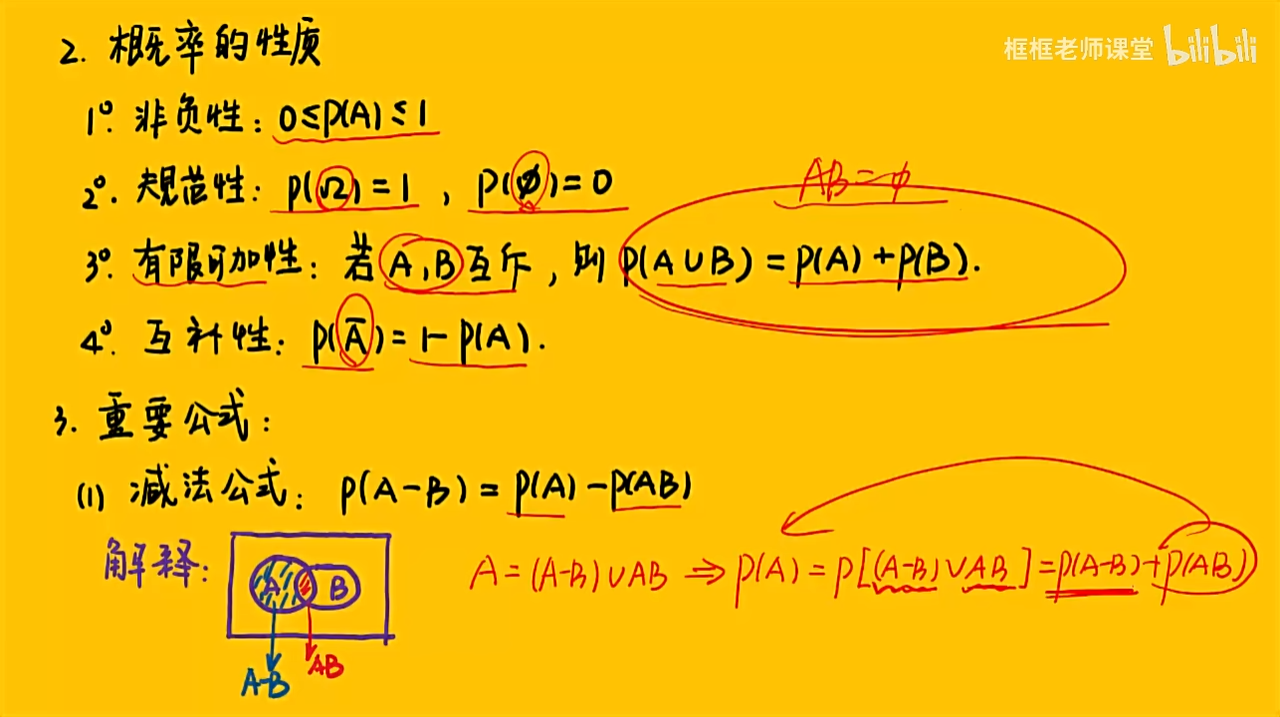 框框老师课堂 bilibili
2. 概率的性质
1°. 非负性: 0≤P(A)≤1
2°. 规范性: P(Ω)=1, P(φ)=0
AB=φ
3°. 有限可加性: 若A,B互斥, 则P(A∪B)=P(A)+P(B).
4°. 互补性: P(Ā)=1-P(A).
3. 重要公式:
(1) 减法公式: P(A-B)=P(A)-P(AB)
解释: A B A=(A-B)∪AB ⇒ P(A)=P[(A-B)∪AB]=P(A-B)+P(AB)
A-B AB